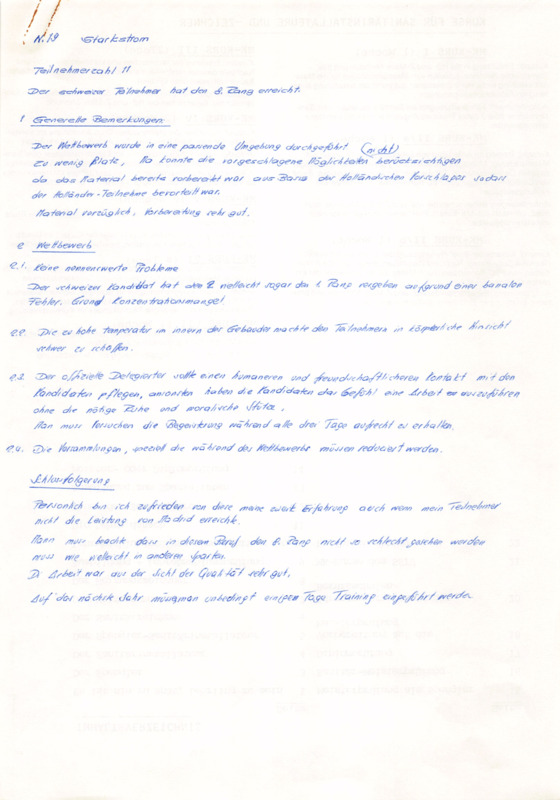 N. 19 Starkstrom
Teilnehmerzahl 11
Der schweizer Teilnehmer hat den 8. Rang erreicht.
1 Generelle Bemerkungen
Der Wettbewerb wurde in eine passende Umgebung durchgeführt (nicht)
Zu wenig Platz, Ma konnte die vorgeschlagene Möglichkeiten berücksichtigen
da das Material bereits vorbereitet war aus Basis der Holländischen Vorschlages sodass
der Holländer-Teilnehme bevorteilt war.
Material vorzüglich, Vorbereitung sehr gut.
2 Wettbewerb
2.1. Keine nennenswerte Probleme
Der schweizer Kandidat hat den 2 vielleicht sogar den 1. Rang vergeben aufgrund einer banalen
Fehler. Grund Konzentrationsmangel
2.2. Die zu hohe temperatur im innern der Gebäudes machte den Teilnehmern in körperliche Hinsicht
schwer zu schaffen.
2.3. Der offizielle Delegierter sollte einen humaneren und freundschaftlicheren Kontakt mit den
Kandidaten pflegen, ansonsten haben die Kandidaten das Gefühl eine Arbeit auszuführen
ohne die nötige Ruhe und moralische Stütze.
Man muss versuchen die Begeisterung während alle drei Tage aufrecht zu erhalten.
2.4. Die Versammlungen, speziell die während des Wettbewerbs müssen reduziert werden.
Schlussfolgerung
Persönlich bin ich zufrieden von diese meine zweite Erfahrung auch wenn mein Teilnehmer
nicht die Leistung von Madrid erreichte.
Mann muss beachte dass in diesem Beruf den 8. Rang nicht so schlecht gesehen werden
muss wie vielleicht in anderen Sparten.
Di Arbeit war aus der Sicht der Qualität sehr gut.
Auf das nächste Jahr müssman unbedingt einigem Tage Training eingeführt werde